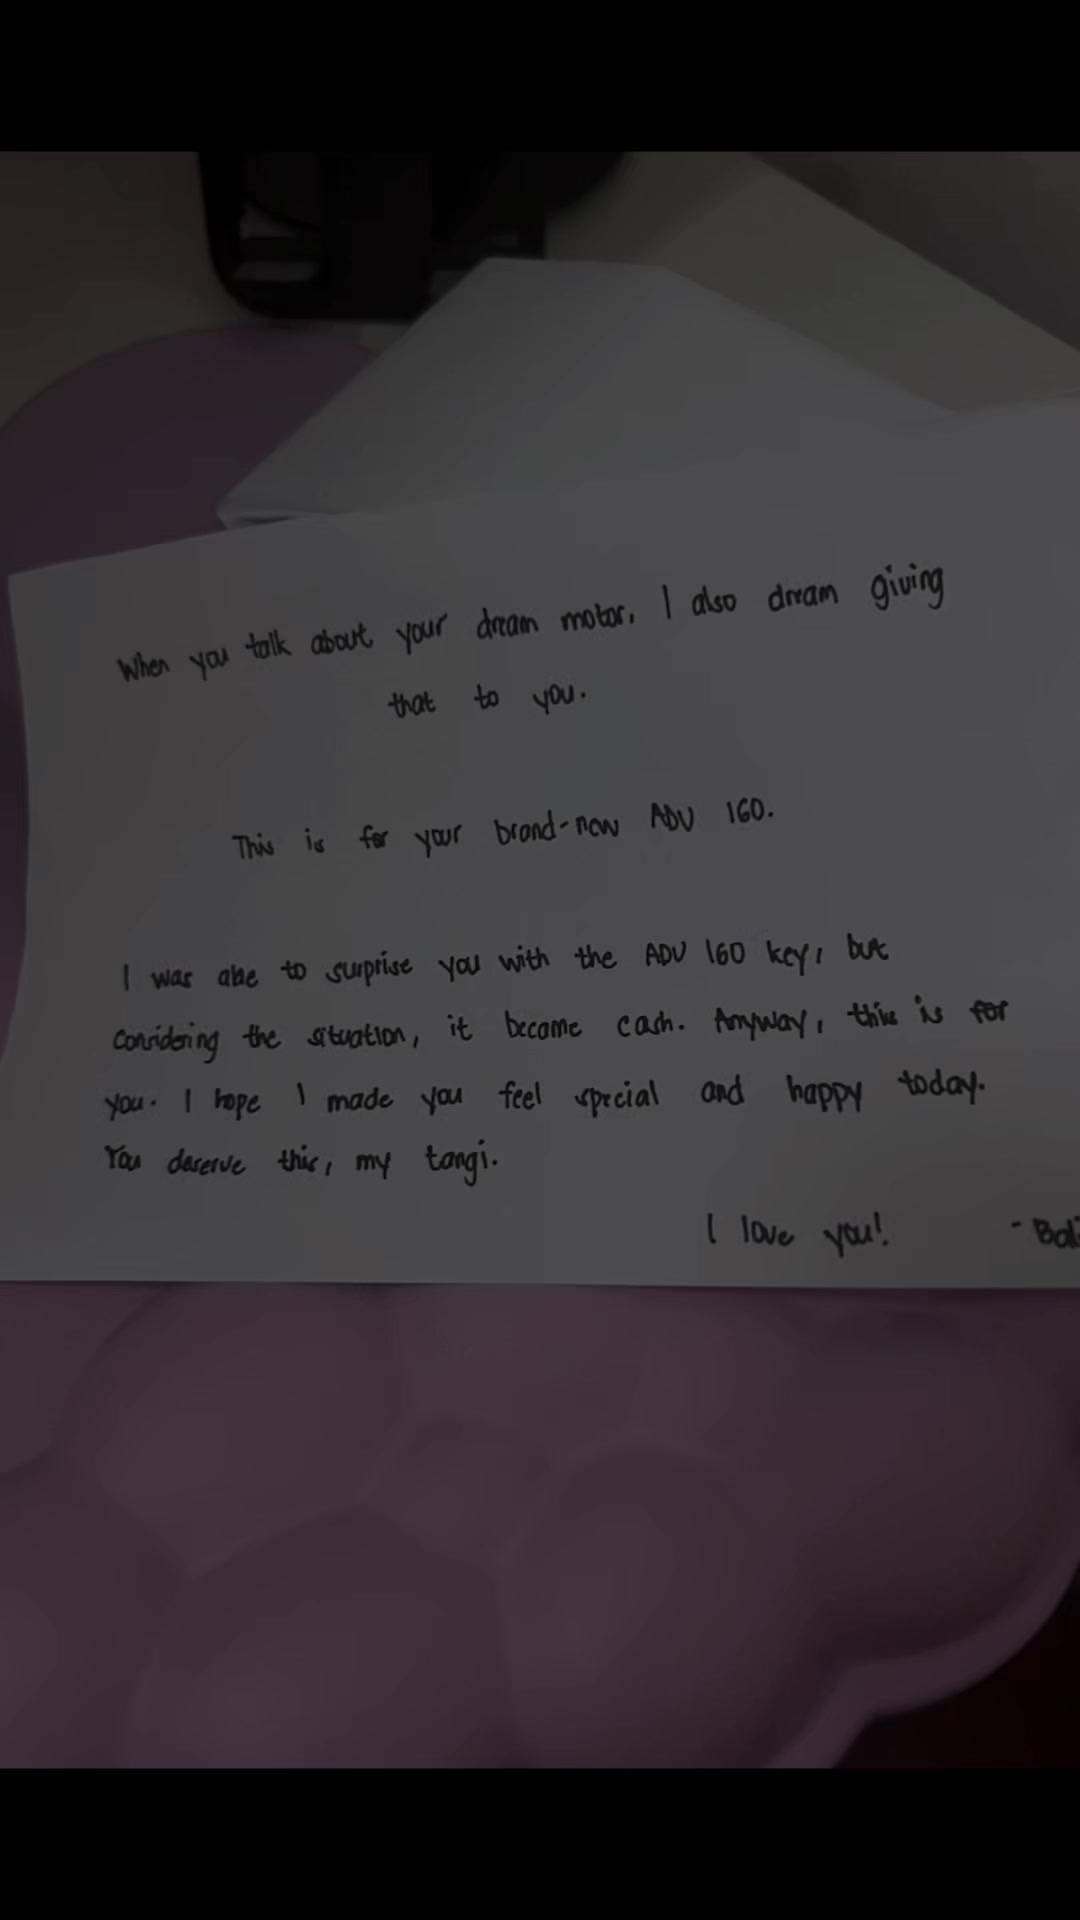 When you talk about your dream motor, I also dream giving
that to you.
This is for your brand-new ADV 160.
I was abe to surprise you with the ADV 160 key, but
considering the situation, it became cash. Anyway, this is for
you. I hope I made you feel special and happy today.
You deserve this, my tangi.
I love you! -